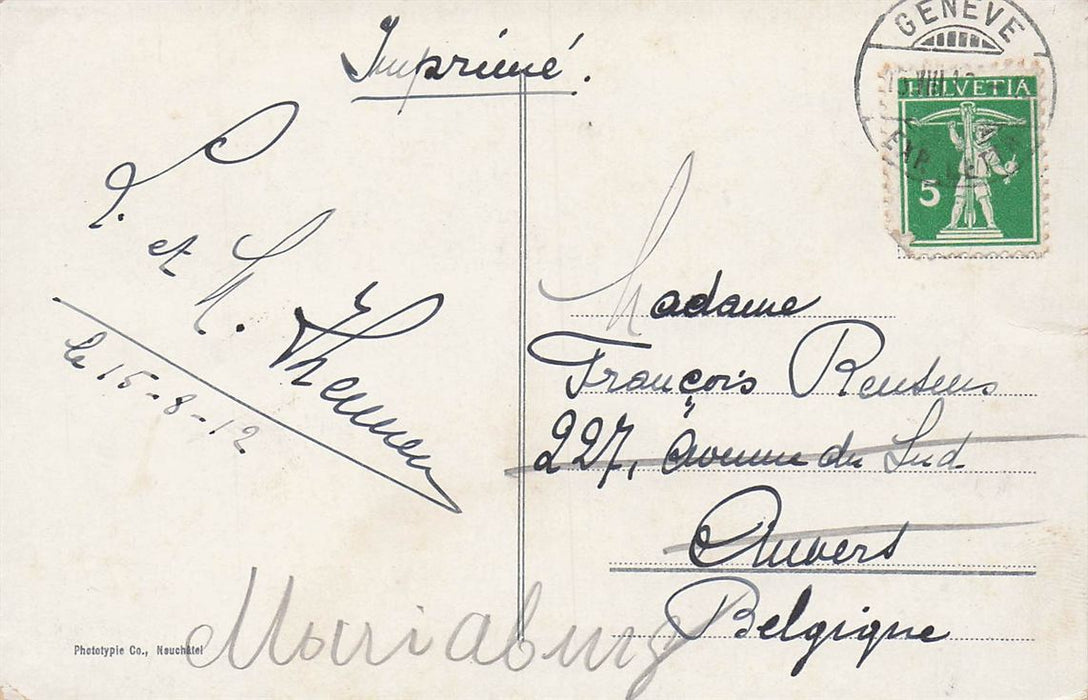 Imprimé.
GENÈVE
15.VIII.12
EXP. LET
HELVETIA
5
L. et M.
le 15-8-12
Madame
François Rensens
227, Avenue du Sud
Anvers
Belgique
Mariaburg
Phototypie Co., Neuchâtel